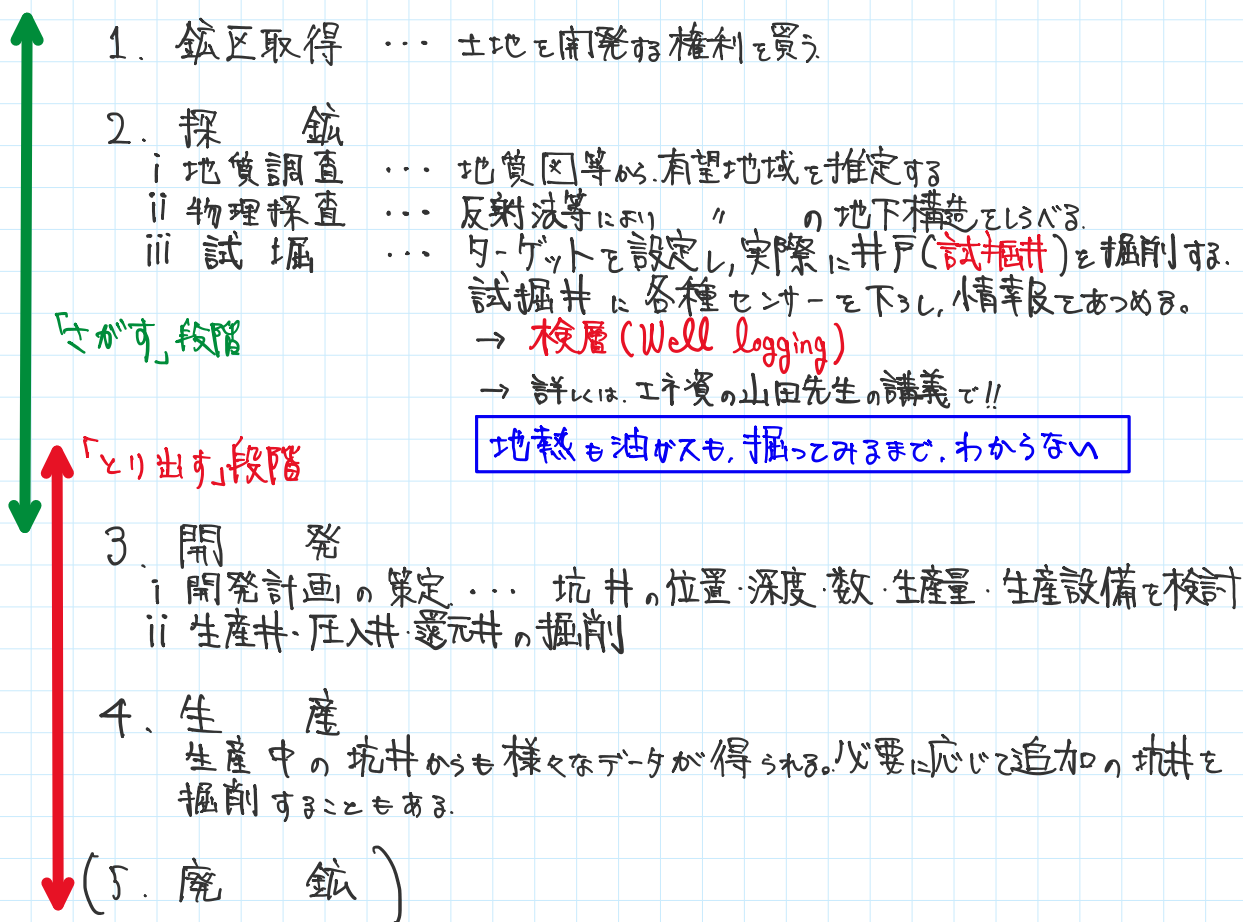 1. 鉱区取得 … 土地を開発する権利を買う
2. 探 鉱
i 地質調査 … 地質図等から.有望地域を推定する
ii 物理探査 … 反射法等により 〃 の地下構造をしらべる.
iii 試 堀 … ターゲットを設定し,実際に井戸(試掘井)を掘削する.
試掘井に各種センサーを下ろし,情報をあつめる。
「さがす」段階
→ 検層(Well logging)
→ 詳しくは.エネ資の山田先生の講義で!!
地熱も油ガスも,掘ってみるまで.わからない
「とり出す」段階
3. 開 発
i 開発計画の策定 … 坑井の位置・深度・数・生産量・生産設備を検討
ii 生産井・圧入井・還元井の掘削
4. 生 産
生産中の坑井からも様々なデータが得られる。必要に応じて追加の坑井を
掘削することもある.
(5. 廃 鉱)